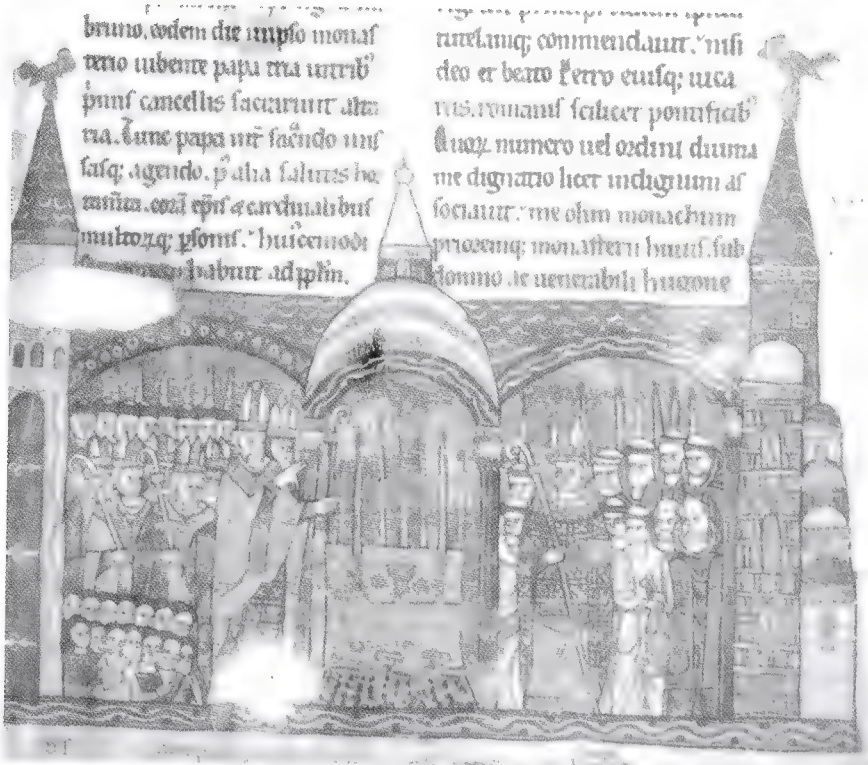 bruno. eodem die in ipso monaſ
terio iubente papa tria in trib᷒
pͥmiſ cancelliſ ſacrarunt alta
ria. Tunc papa int̄ ſac̄ndo miſ
ſaſq; agendo. p᷒ alia ſalutis ho
coꝛā ep̄iſ & cardinalibuſ
multoꝝq; pſoniſ. huiꝰcemodi
habuit ad pp̄lm.
tutelamq; commendauit. niſi
deo et beato Petro eiuſq; uica
riiſ. romaniſ ſcilicet pontificib᷒
Quoꝝ numero uel ordini diuina
me dignatio licet indignum aſ
ſociauit. me olim monachum
prioremq; monaſterii huiuſ. ſub
domno ac uenerabili hugone